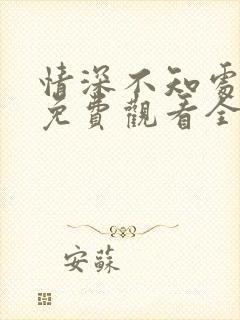 情深不知處
免費觀看全
安蘇